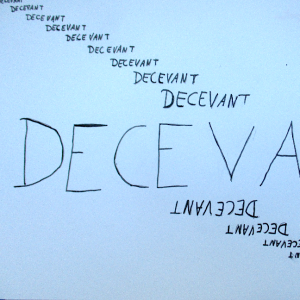 DECEVANT
DECEVANT
DECEVANT
DECEVANT
DECEVANT
DECEVANT
DECEVANT
DECEVANT
DECEVA
DECEVANT
DECEVANT
DECEVANT